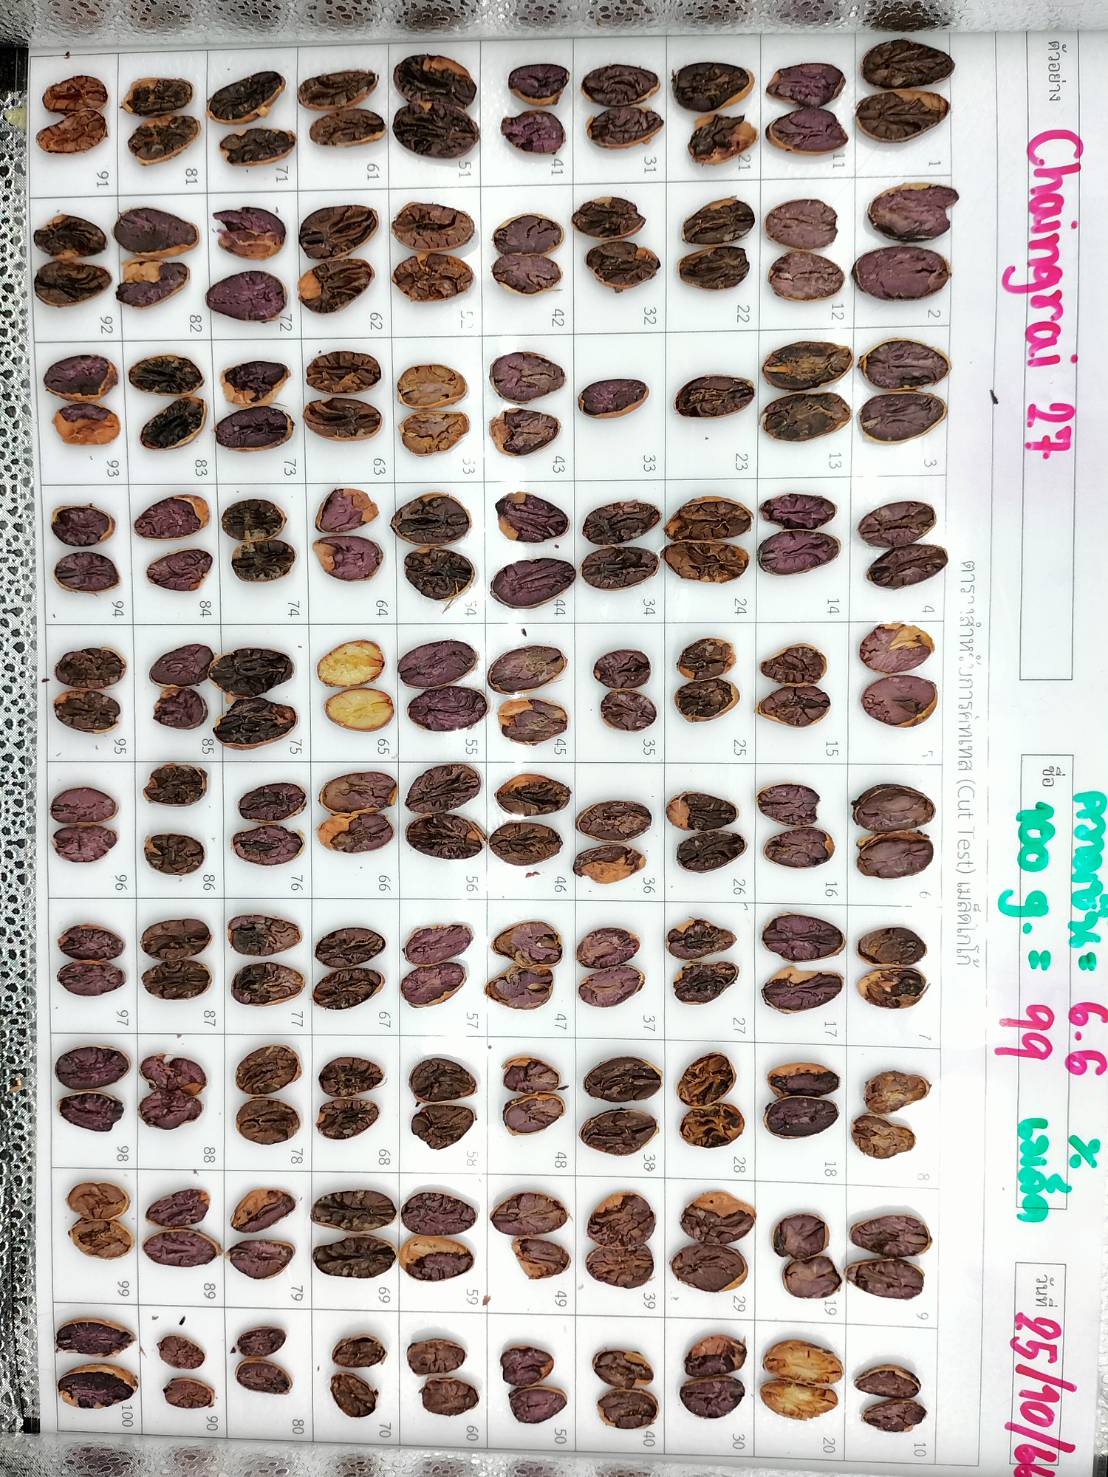 ความชื้น = 6.6 %
ตัวอย่าง Chaingrai 27 ชื่อ 100 g. = 99 เมล็ด วันที่ 25/10/66
ตารางสำหรับการคัทเทส (Cut Test) เมล็ดโกโก้
1 2 3 4 5 6 7 8 9 10
11 12 13 14 15 16 17 18 19 20
21 22 23 24 25 26 27 28 29 30
31 32 33 34 35 36 37 38 39 40
41 42 43 44 45 46 47 48 49 50
51 52 53 54 55 56 57 58 59 60
61 62 63 64 65 66 67 68 69 70
71 72 73 74 75 76 77 78 79 80
81 82 83 84 85 86 87 88 89 90
91 92 93 94 95 96 97 98 99 100